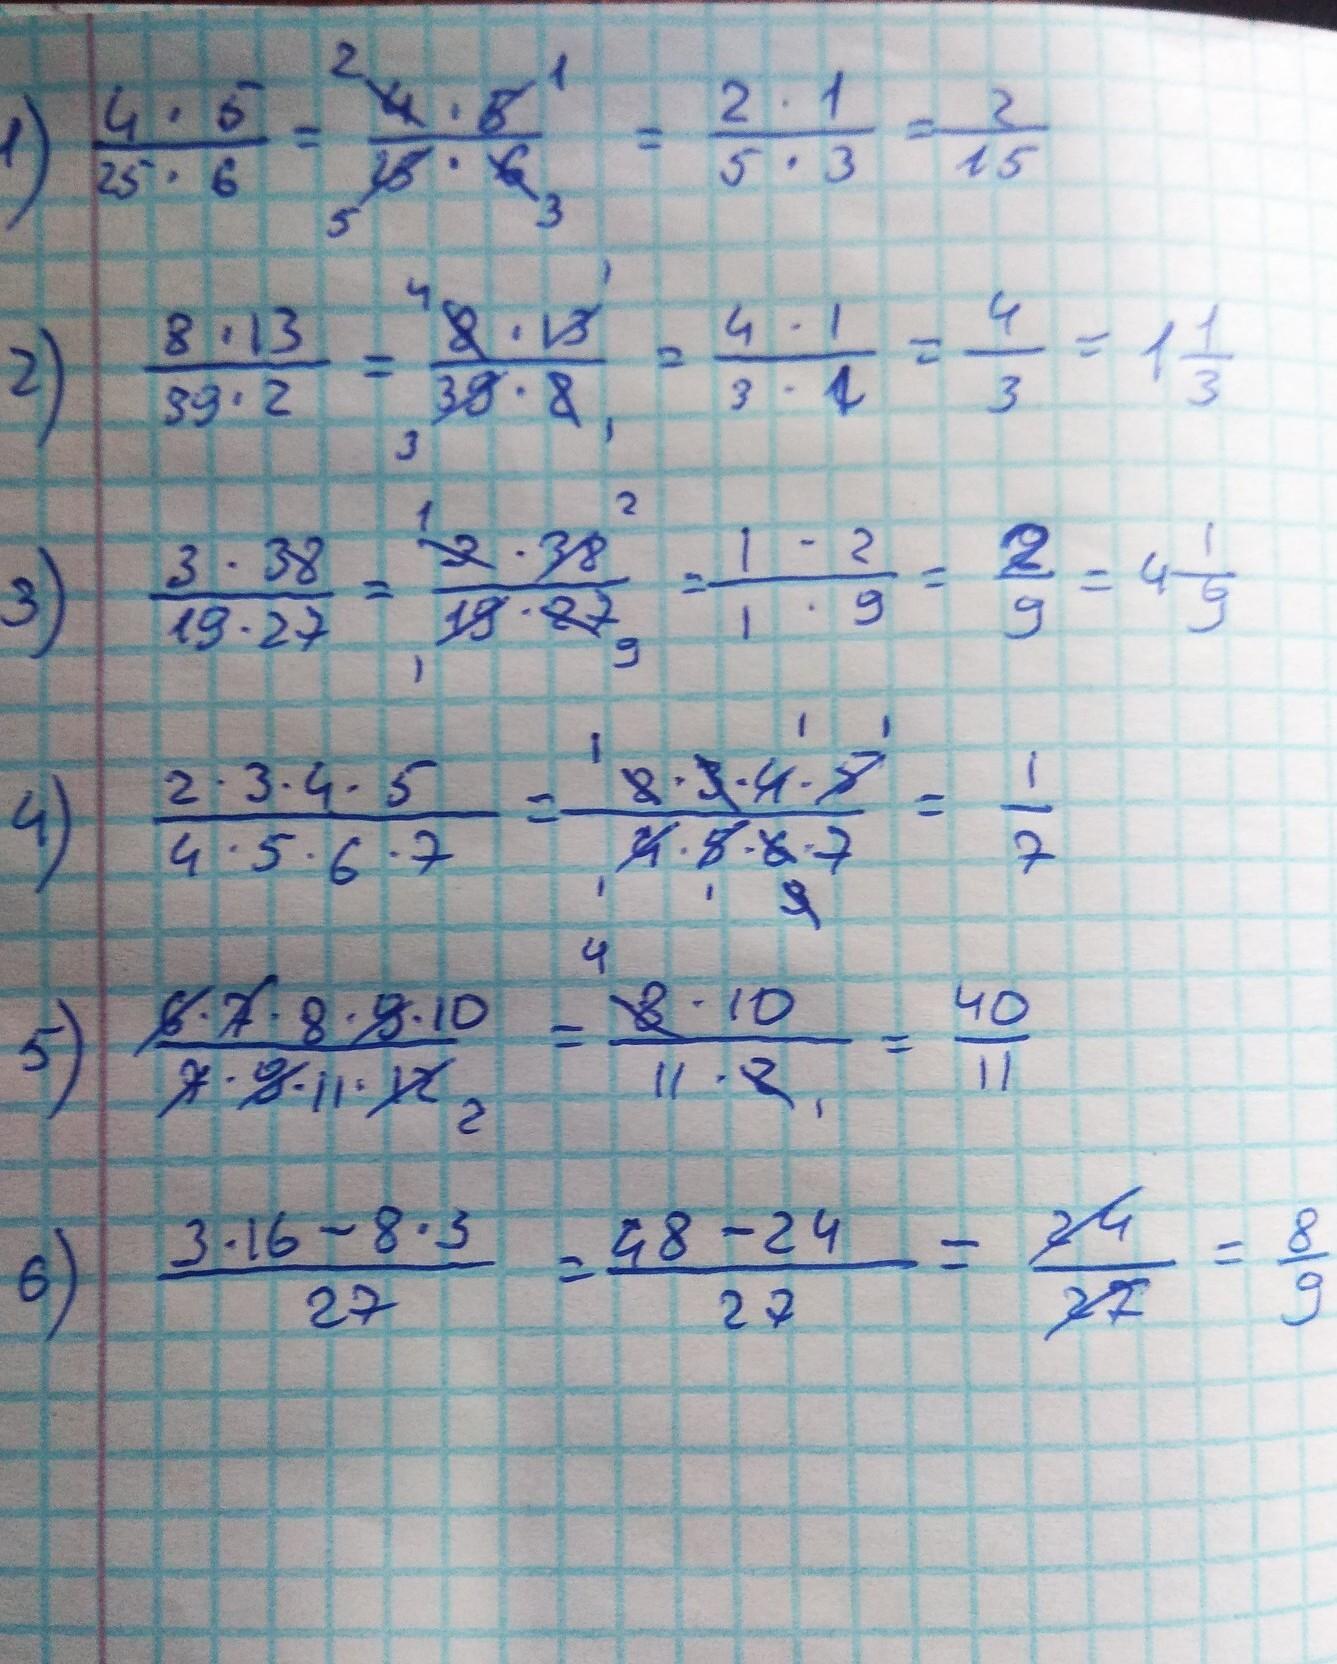 1) (4 · 5)/(25 · 6) = (4 · 5)/(25 · 6) 2 1 5 3 = (2 · 1)/(5 · 3) = 2/15
2) (8 · 13)/(39 · 2) = (8 · 13)/(39 · 2) 4 1 3 1 = (4 · 1)/(3 · 1) = 4/3 = 1 1/3
3) (3 · 38)/(19 · 27) = (3 · 38)/(19 · 27) 1 2 1 9 = (1 · 2)/(1 · 9) = 2/9 = 4 1/9
4) (2 · 3 · 4 · 5)/(4 · 5 · 6 · 7) = (2 · 3 · 4 · 5)/(4 · 5 · 6 · 7) 1 1 1 1 1 2 = 1/7
5) (6 · 7 · 8 · 9 · 10)/(7 · 9 · 11 · 12) 2 = (8 · 10)/(11 · 2) 4 1 = 40/11
6) (3 · 16 - 8 · 3)/27 = (48 - 24)/27 = 24/27 = 8/9